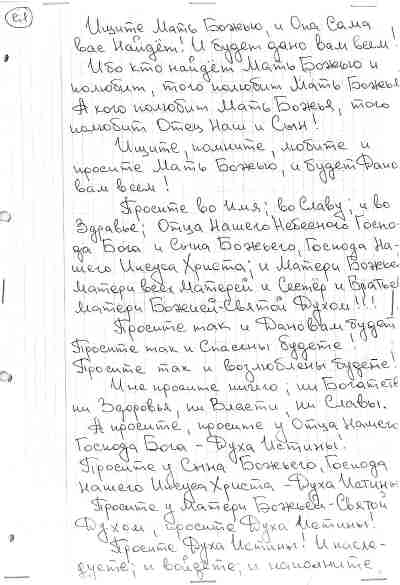 Ищите Мать Божью, и Она Сама
вас найдёт! И будет дано вам всем!
Ибо кто найдёт Мать Божью и
полюбит, того полюбит Мать Божья
А кого полюбит Мать Божья, того
полюбит Отец Наш и Сын!
Ищите, помните, любите и
просите Мать Божью, и будет Дано
вам всем!
Просите во Имя; во Славу; и во
Здравье; Отца Нашего Небесного Госпо-
да Бога и Сына Божьего, Господа На-
шего Иисуса Христа; и Матери Божьей
Матери всех Матерей и Сестёр и Братьев
Матери Божией-Святой Духом!!!
Просите так и Дано вам будет
Просите так и Спасены будете!
Просите так и возлюблены будете!
И не просите ничего; ни Богатств
ни Здоровья, ни Власти, ни Славы.
А просите, просите у Отца Нашего
Господа Бога - Духа Истины!
Просите у Сына Божьего, Господа
Нашего Иисуса Христа - Духа Истины
Просите у Матери Божьей-Святой
Духом, просите Духа Истины!
Просите Духа Истины! И насле-
дуете; и войдете; и наполните